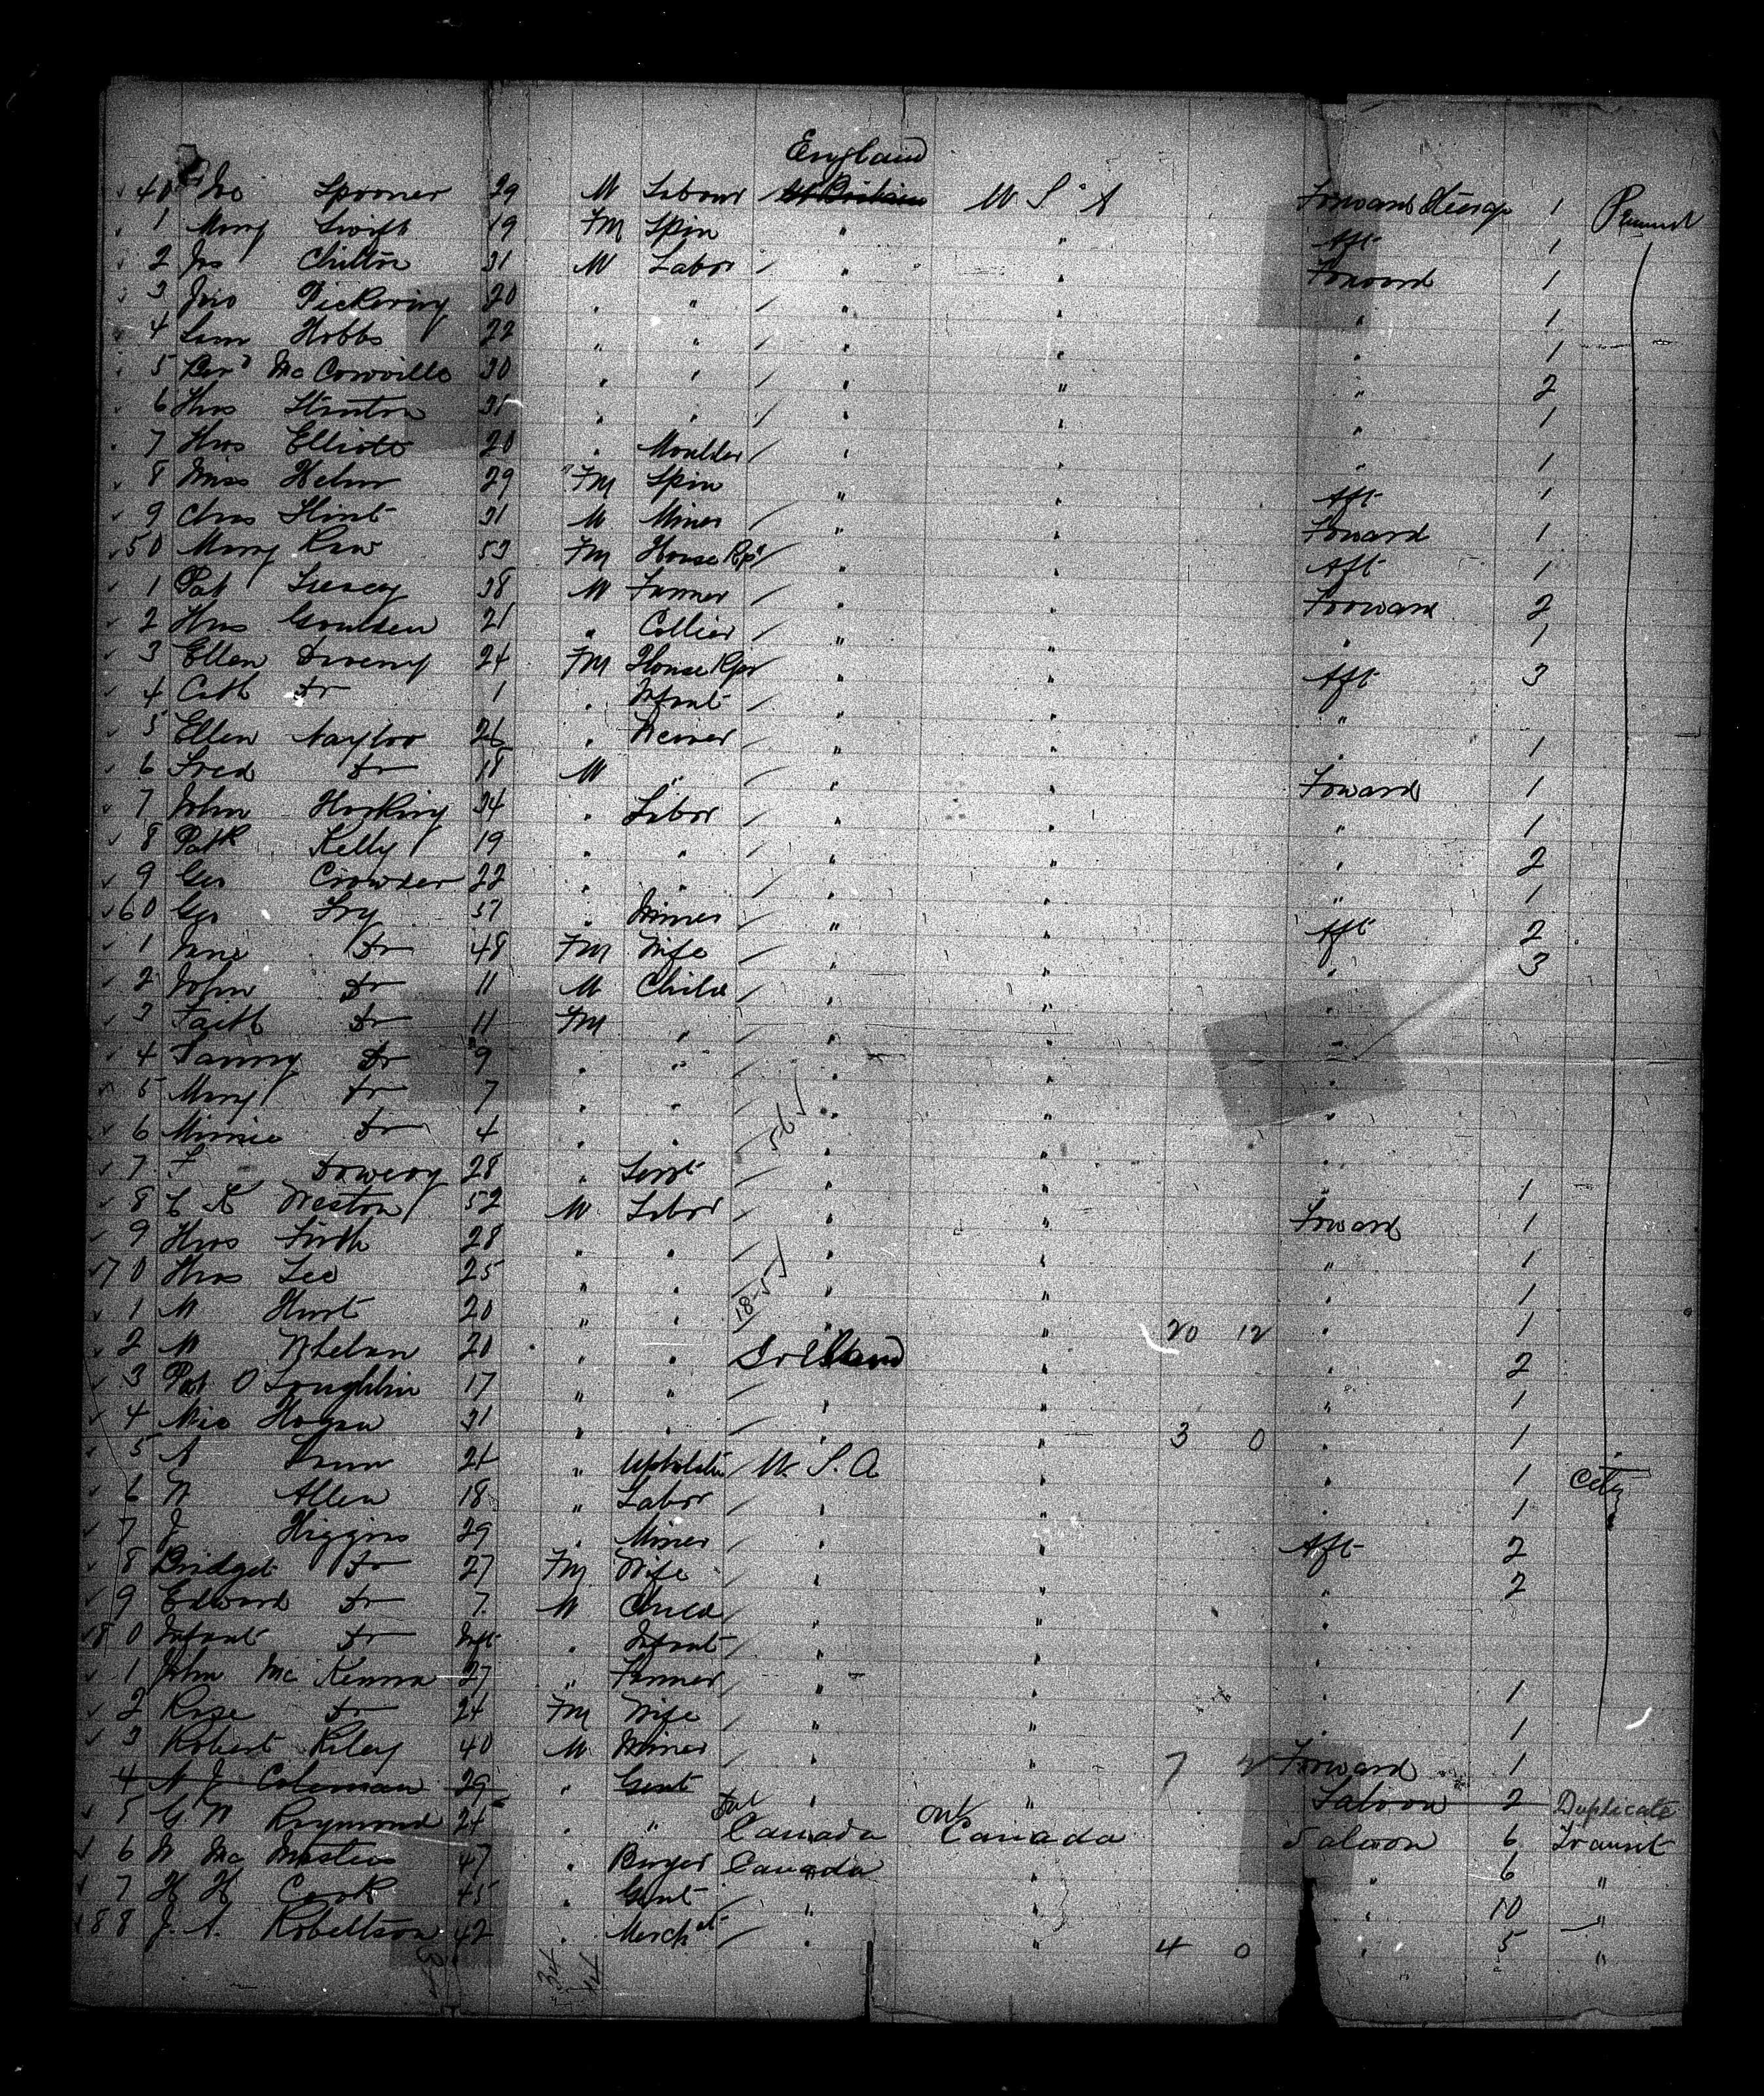 England
40 Jno Spooner 29 M Labour U S A Forward Steerage 1
1 Mary Swift 19 FM Spin " " Aft 1
2 Jno Chilton 31 M Labor " " Forward 1
3 Jno Pickering 20 " " " " " 1
4 Sam Hobbs 22 " " " " " 1
5 " " " " " 2
6 Thos Stinton " " " " " 1
7 Thos Elliott 20 " Moulder " " " 1
8 Miss Helm 29 FM Spin " " Aft 1
9 Chas Flint 31 M Miner " " Forward 1
50 Mary Raw 53 FM House Kpr " " Aft 1
1 Pat 38 M Farmer " " Forward 2
2 Thos Goulden 21 " Collier " " " 1
3 Ellen 24 FM House Kpr " " Aft 3
4 Cath Do 1 " Infant " " "
5 Ellen Naylor 26 " Weaver " " " 1
6 Fred Do 18 M " " " Forward 1
7 John Hosking 34 " Labor " " " 1
8 Patk Kelly 19 " " " " " 2
9 Geo Crowder 22 " " " " " 1
60 Geo Fry 37 " Miner " " Aft 2
1 Jane Do 48 FM Wife " " " 3
2 John Do 11 M Child " " "
3 Faith Do 11 FM " " " "
4 Fanny Do 9 " " " " "
5 Mary Do 7 " " " " "
6 Minnie Do 4 " " " " "
7 28 " Servt " " " 1
8 C K Weston 52 M Labor " " Forward 1
9 Thos Firth 28 " " " " " 1
70 Thos Lee 25 " " " " " 1
1 M Hurst 20 " " " " 20 12 " 1
2 M Whelan 20 " " Ireland " " 2
3 Pat O Loughlin 17 " " " " " 1
4 Mic Hogan 31 " " " " 3 0 " 1
5 A 21 " U.S.A " " 1 City
6 W Allen 18 " Labor " " " 1
7 J Higgins 29 " Miner " " Aft 2
8 Bridget Do 27 FM Wife " " " 2
9 Edward Do 7 M Child " " "
80 Infant Do Inft " Infant " " "
1 John McKenna 27 " Farmer " " " 1
2 Rose Do 24 FM Wife " " " 1
3 Robert Riley 40 M Miner " " 7 Forward 1
4 A J Coleman 29 " Gent " " Saloon 2 Duplicate
5 G W Raymond 24 " " Canada Ont Canada Saloon 6 Transit
6 W McMasters 47 " Canada " 6 "
7 H H Cook 45 " Gent " " " 10 "
88 J. A. Robertson 42 " Mercht " " 4 0 " 5 "